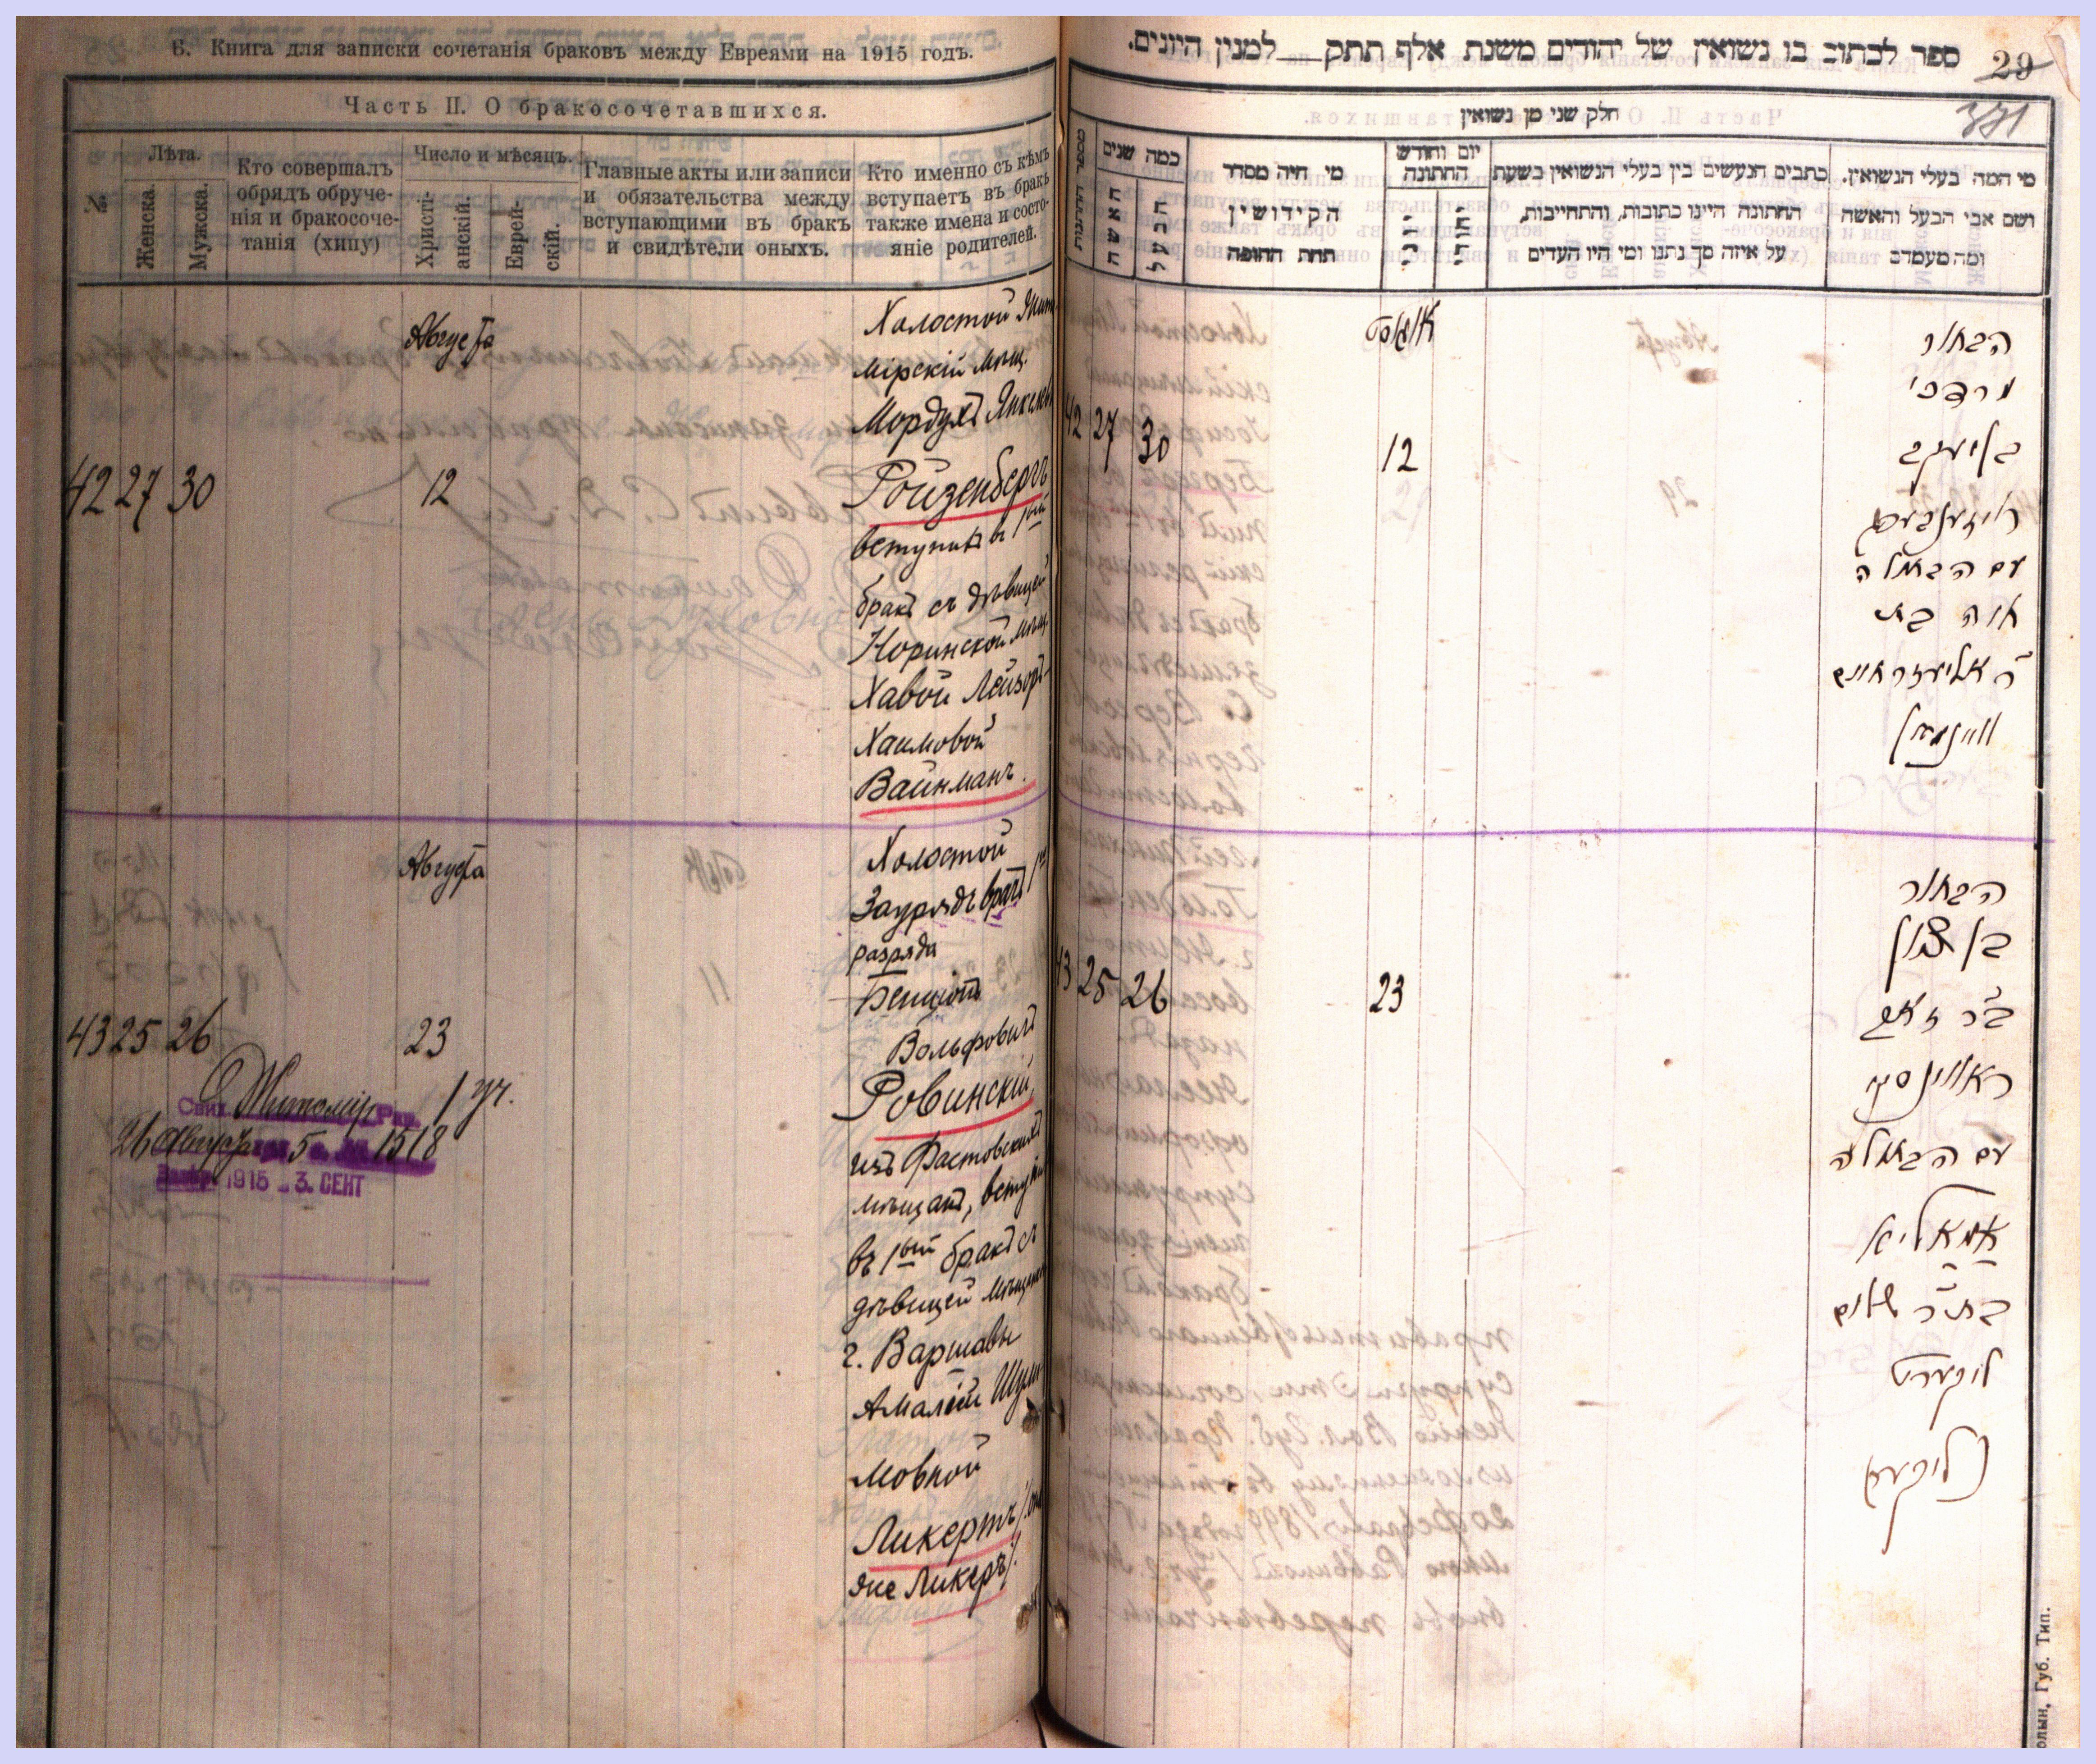 Б. Книга для записки сочетанія браковъ между Евреями на 1915 годъ.
Часть II. О бракосочетавшихся.
№
Лѣта.
Женска.
Мужска.
Кто совершалъ
обрядъ обруче-
нія и бракосоче-
танія (хипу)
Число и мѣсяцъ.
Христі-
анскій.
Еврей-
скій.
Главные акты или записи
и обязательства между
вступающими въ бракъ
и свидѣтели оныхъ.
Кто именно съ кѣмъ
вступаетъ въ бракъ
также имена и состо-
яніе родителей.
Августа
42 27 30 12
Холостой Жито
мірскій мѣщ.
Мордухъ Янкелев
Ройзенбергъ
вступилъ в 1ый
бракъ съ дѣвицей
Норинской мѣщ.
Хавой Лейзоръ-
Хаимовой
Вайнманъ.
Августа
43 25 26 23
Холостой
Заурядъ врачъ 1го
разряда
Бенціонъ
Вольфовичъ
Ровинскій,
изъ Фастовскихъ
мѣщанъ, вступилъ
въ 1ый бракъ съ
дѣвицей мѣщан
г. Варшавы
Амаліей Шули-
мовной
Ликертъ
яне Ликеръ/.
Житомір 1 уч.
26 Августа 5 1518
1915 - 3. СЕНТ
ספר לכתוב בו נשואין של יהודים משנת אלף תתק למנין היונים.
29
371
חלק שני מן נשואין
מי המה בעלי הנשואין.
ושם אבי הבעל והאשה
ומה מעמדם
כתבים הנעשים בין בעלי הנשואין בשעת
החתונה היינו כתובות, והתחייבות,
על איזה סך נתנו ומי היו העדים
יום וחודש
החתונה
יוני
יהודי
מי היה מסדר
הקידושין
תחת החופה
כמה שנים
הבעל
האשה
אויגוסט
42 27 30 12
הבחור
מרדכי
בן יעקב
רויזענבערג
עם הבתולה
חוה בת
ר' אליעזר חיים
וויינמאן
43 25 26 23
הבחור
בן ציון
ב"ר זאב
ראווינסקי
עם הבתולה
אמאליא
בת ר' שלום
ליקערט
ליקער
олын, Губ. Тип.